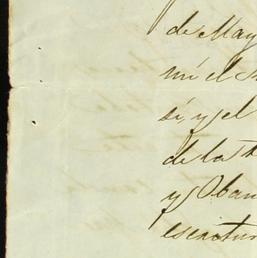 de May
mi el
si, y el
de la
y Oban
escritur